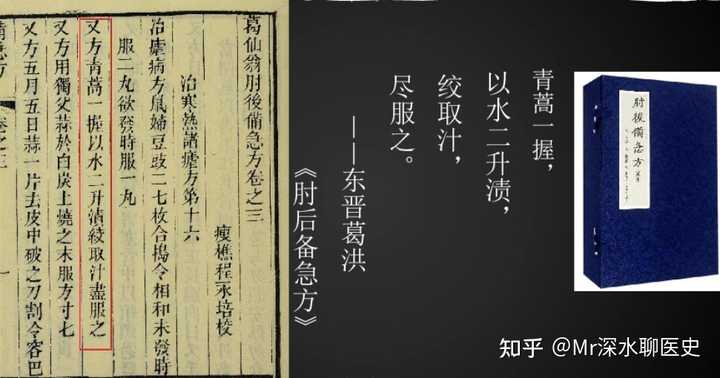 葛仙翁肘後備急方卷之三
瘦樵程永培校
治寒熱諸瘧方第十六
治瘧病方鼠婦豆豉二七枚合搗令相和未發時
服二丸欲發時服一丸
又方青蒿一握以水二升漬絞取汁盡服之
又方用獨父蒜於白炭上燒之末服方寸七
又方五月五日蒜一片去皮中破之刀割令容巴
青蒿一握，
以水二升渍，
绞取汁，
尽服之。
——东晋葛洪
《肘后备急方》
肘後備急方
知乎 @Mr深水聊医史